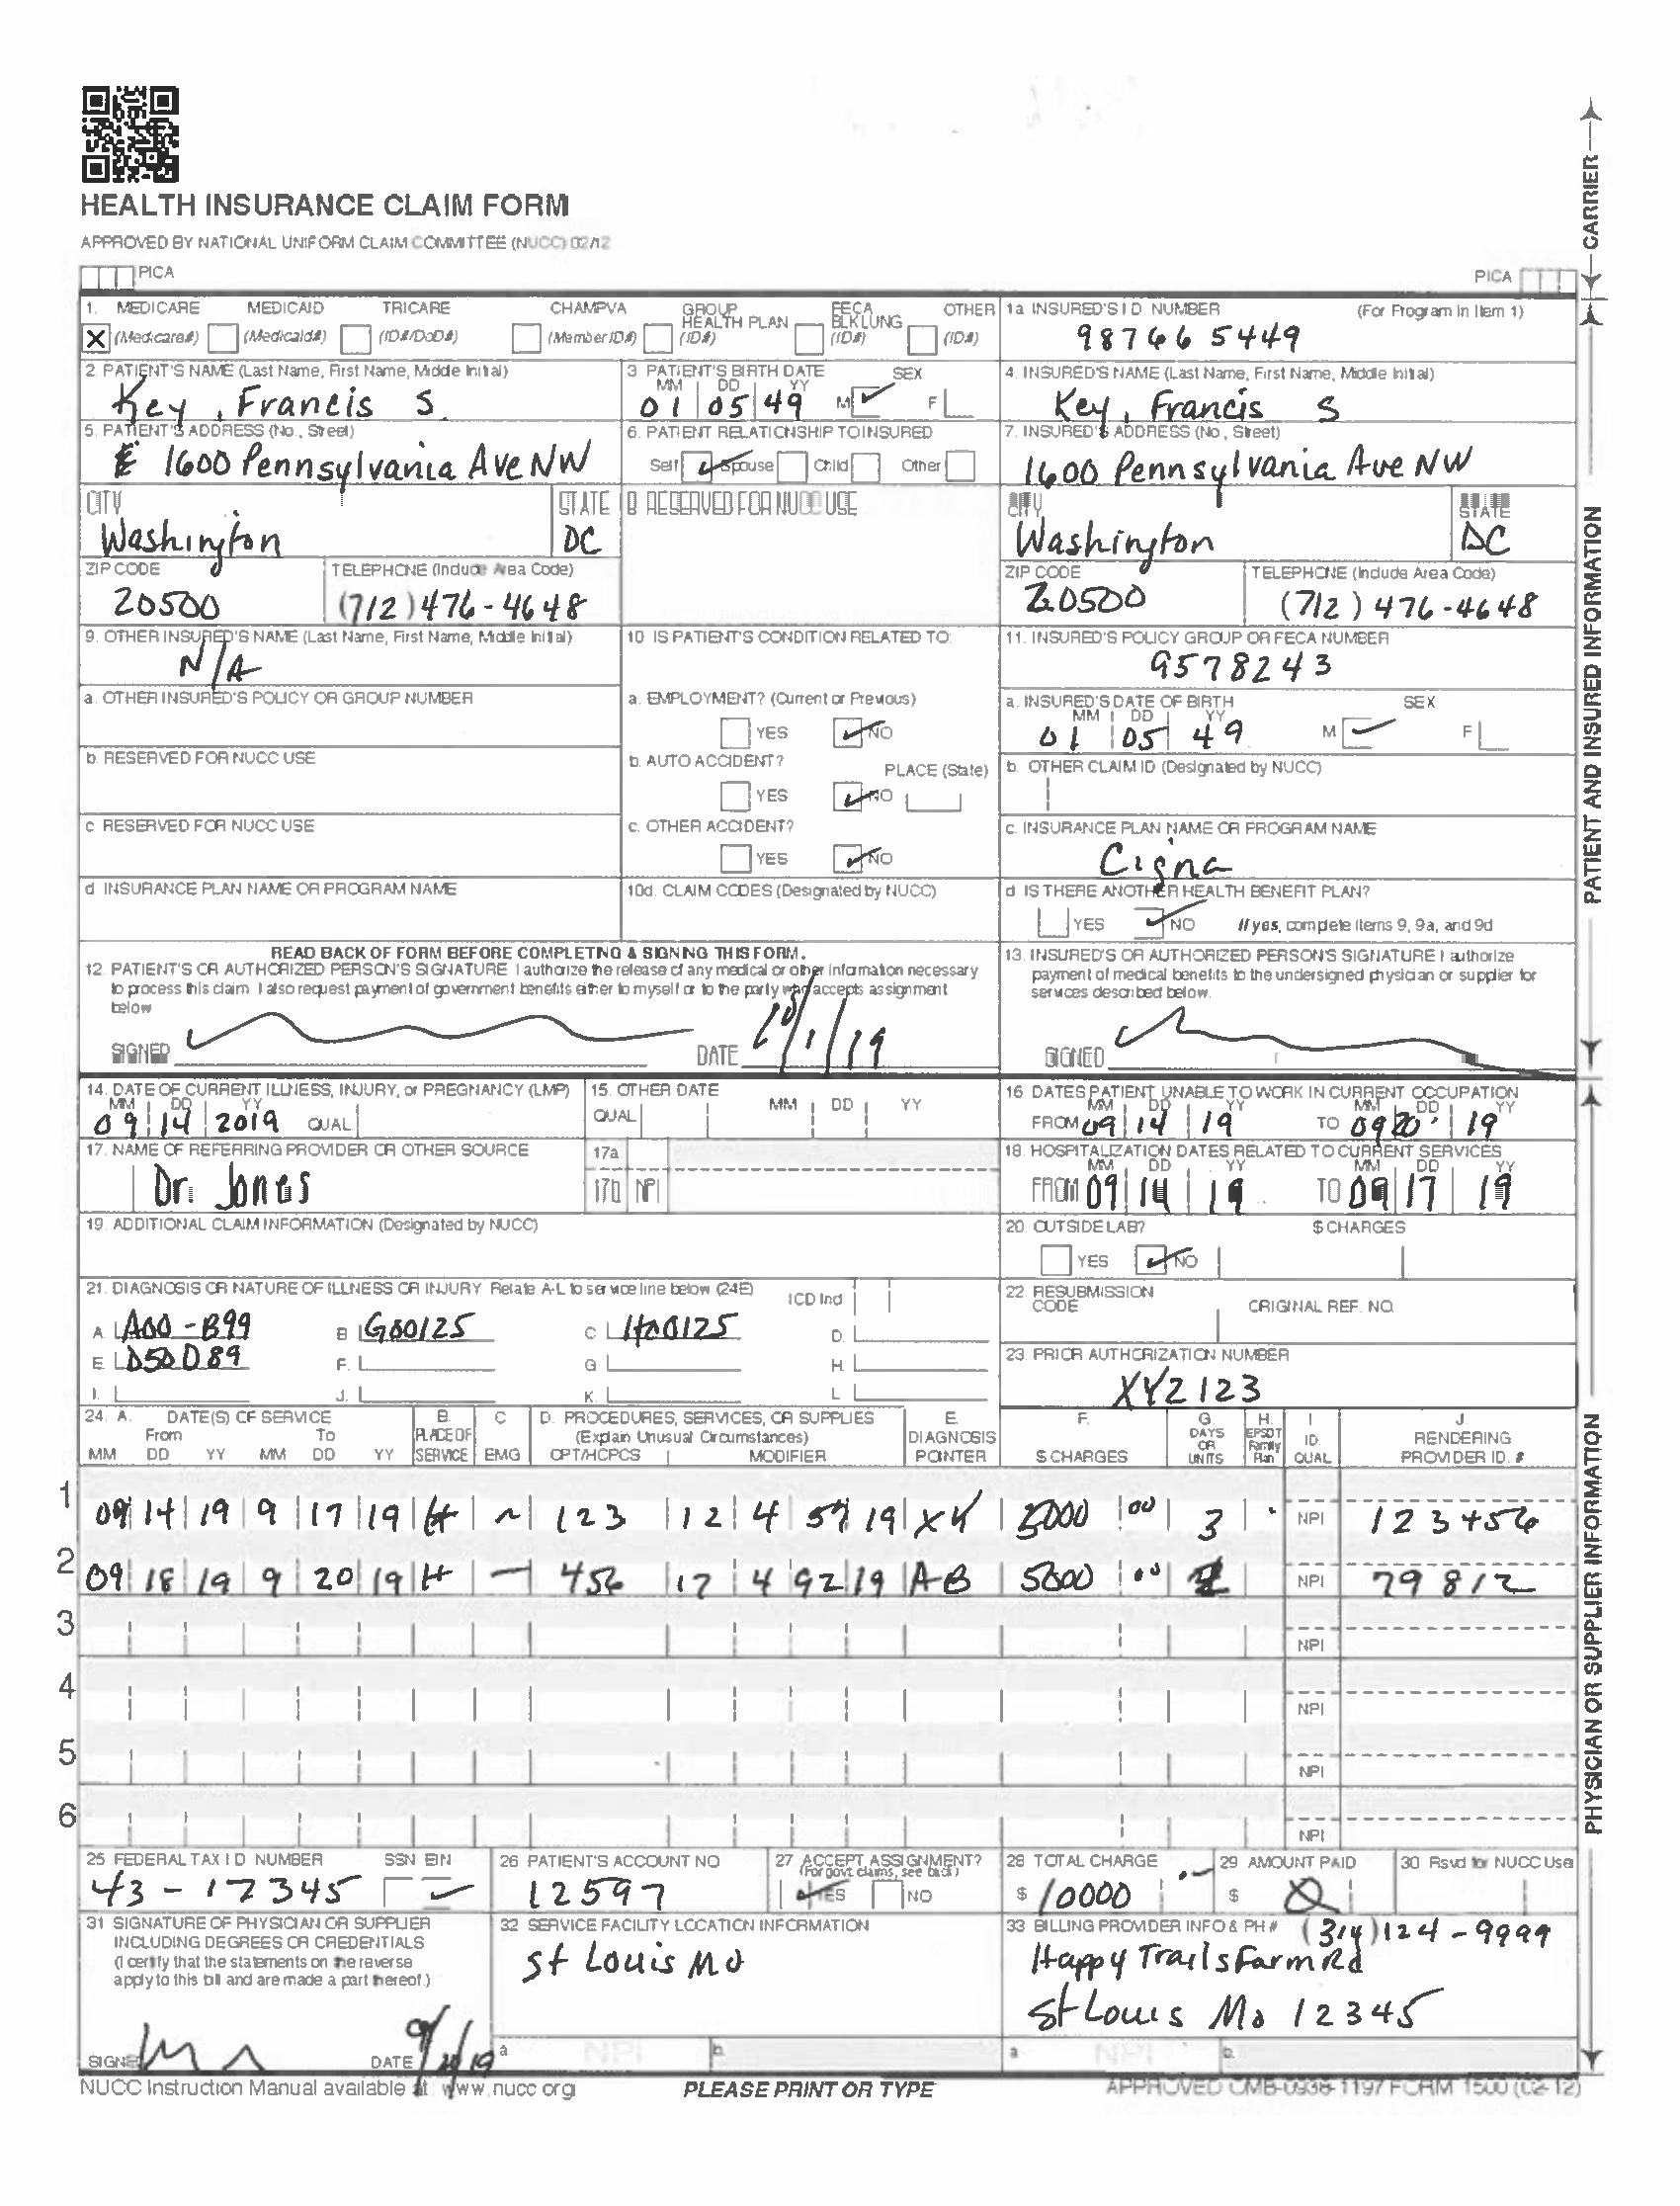 HEALTH INSURANCE CLAIM FORM
APPROVED BY NATIONAL UNIFORM CLAIM COMMITTEE (NUCC) 02/12
PICA PICA
CARRIER
1. MEDICARE MEDICAID TRICARE CHAMPVA GROUP HEALTH PLAN FECA BLK LUNG OTHER
X (Medicare#) (Medicaid#) (ID#/DoD#) (Member ID#) (ID#) (ID#) (ID#)
1a INSURED'S I.D. NUMBER (For Program in Item 1)
98766 5449
2. PATIENT'S NAME (Last Name, First Name, Middle Initial)
Key, Francis S.
3 PATIENT'S BIRTH DATE SEX
MM DD YY
01 05 49 M F
4. INSURED'S NAME (Last Name, First Name, Middle Initial)
Key, Francis S
5. PATIENT'S ADDRESS (No., Street)
1600 Pennsylvania Ave NW
6. PATIENT RELATIONSHIP TO INSURED
Self Spouse Child Other
7. INSURED'S ADDRESS (No., Street)
1600 Pennsylvania Ave NW
CITY STATE
Washington DC
8 RESERVED FOR NUCC USE
CITY STATE
Washington DC
ZIP CODE TELEPHONE (Include Area Code)
20500 (712) 476-4648
ZIP CODE TELEPHONE (Include Area Code)
20500 (712) 476-4648
9. OTHER INSURED'S NAME (Last Name, First Name, Middle Initial)
N/A
a. OTHER INSURED'S POLICY OR GROUP NUMBER
b. RESERVED FOR NUCC USE
c RESERVED FOR NUCC USE
d INSURANCE PLAN NAME OR PROGRAM NAME
10 IS PATIENT'S CONDITION RELATED TO:
a. EMPLOYMENT? (Current or Previous)
YES NO
b. AUTO ACCIDENT? PLACE (State)
YES NO
c. OTHER ACCIDENT?
YES NO
10d. CLAIM CODES (Designated by NUCC)
11. INSURED'S POLICY GROUP OR FECA NUMBER
9578243
a. INSURED'S DATE OF BIRTH SEX
MM DD YY
01 05 49 M F
b. OTHER CLAIM ID (Designated by NUCC)
c. INSURANCE PLAN NAME OR PROGRAM NAME
Cigna
d IS THERE ANOTHER HEALTH BENEFIT PLAN?
YES NO If yes, complete items 9, 9a, and 9d
READ BACK OF FORM BEFORE COMPLETING & SIGNING THIS FORM.
12. PATIENT'S OR AUTHORIZED PERSON'S SIGNATURE I authorize the release of any medical or other information necessary
to process this claim. I also request payment of government benefits either to myself or to the party who accepts assignment
below
SIGNED DATE 10/1/19
13. INSURED'S OR AUTHORIZED PERSON'S SIGNATURE I authorize
payment of medical benefits to the undersigned physician or supplier for
services described below.
SIGNED
PATIENT AND INSURED INFORMATION
14. DATE OF CURRENT ILLNESS, INJURY, or PREGNANCY (LMP)
MM DD YY
09 14 2019 QUAL
15. OTHER DATE
QUAL MM DD YY
16 DATES PATIENT UNABLE TO WORK IN CURRENT OCCUPATION
MM DD YY MM DD YY
FROM 09 14 19 TO 09 20 19
17. NAME OF REFERRING PROVIDER OR OTHER SOURCE
Dr. Jones
17a
17b NPI
18. HOSPITALIZATION DATES RELATED TO CURRENT SERVICES
MM DD YY MM DD YY
FROM 09 14 19 TO 09 17 19
19. ADDITIONAL CLAIM INFORMATION (Designated by NUCC)
20. OUTSIDE LAB? $ CHARGES
YES NO
21. DIAGNOSIS OR NATURE OF ILLNESS OR INJURY Relate A-L to service line below (24E) ICD Ind
A. A00-B99 B G00125 C H00125 D.
E. D50D89 F. G H.
I. J. K. L
22. RESUBMISSION CODE ORIGINAL REF. NO.
23. PRIOR AUTHORIZATION NUMBER
XYZ123
24. A. DATE(S) OF SERVICE B. C D. PROCEDURES, SERVICES, OR SUPPLIES E. F. G H. I J.
From To PLACE OF (Explain Unusual Circumstances) DIAGNOSIS DAYS OR UNITS EPSDT Family Plan ID. RENDERING
MM DD YY MM DD YY SERVICE EMG CPT/HCPCS MODIFIER POINTER $ CHARGES QUAL PROVIDER ID. #
1 09 14 19 9 17 19 H ~ 123 12 4 57 19 XY 5000 00 3 NPI 123456
2 09 18 19 9 20 19 H — 456 17 4 92 19 A-B 5000 00 NPI 79812
3 NPI
4 NPI
5 NPI
6 NPI
25 FEDERAL TAX I.D. NUMBER SSN EIN
43-12345
26 PATIENT'S ACCOUNT NO
12597
27 ACCEPT ASSIGNMENT?
(For govt. claims, see back)
YES NO
28 TOTAL CHARGE
$ 10000
29 AMOUNT PAID
$ 0
30 Rsvd for NUCC Use
31 SIGNATURE OF PHYSICIAN OR SUPPLIER
INCLUDING DEGREES OR CREDENTIALS
(I certify that the statements on the reverse
apply to this bill and are made a part thereof.)
SIGNED DATE 9/20/19
32 SERVICE FACILITY LOCATION INFORMATION
St Louis Mo
a NPI b.
33 BILLING PROVIDER INFO & PH # (314) 124-9999
Happy Trails Farm Rd
St Louis Mo 12345
a NPI b.
PHYSICIAN OR SUPPLIER INFORMATION
NUCC Instruction Manual available at: www.nucc.org PLEASE PRINT OR TYPE APPROVED OMB-0938-1197 FORM 1500 (02-12)